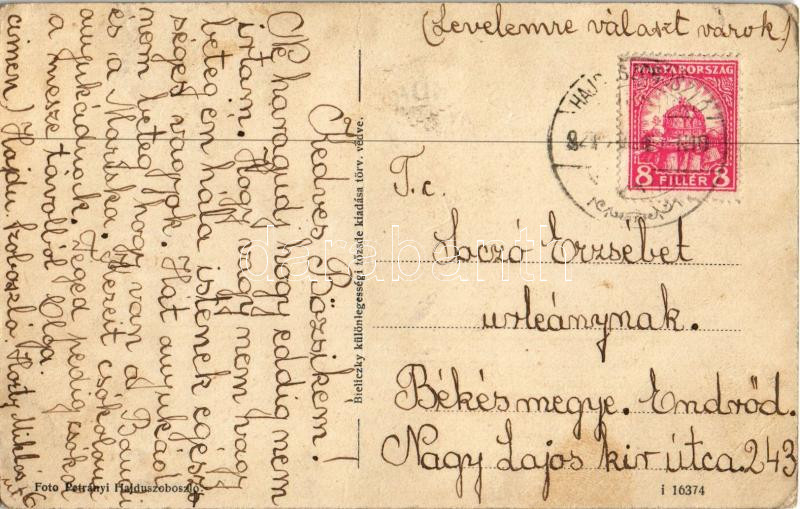 (Levelemre választ várok)
Kedves Bözsikém!
Ne haragudj hogy eddig nem
irtam. Hogy vagy nem vagy
beteg én hála istenek egész
séges vagyok. Hát anyukád
nem beteg, hogy van a
és a Mariska. Kezeit csókolom
anyukádnak. Téged pedig csókol
a messze távolból Olga.
cimem) Hajdu szoboszló. Horty Miklós út 6
Bieliczky különlegességi tőzsde kiadása törv. védve.
MAGYARORSZÁG
8 FILLÉR 8
T. c.
Soczó Erzsébet
urleánynak.
Békésmegye. Endrőd.
Nagy Lajos kir útca. 243
Foto Petrányi Hajduszoboszló.
i 16374
darabanth